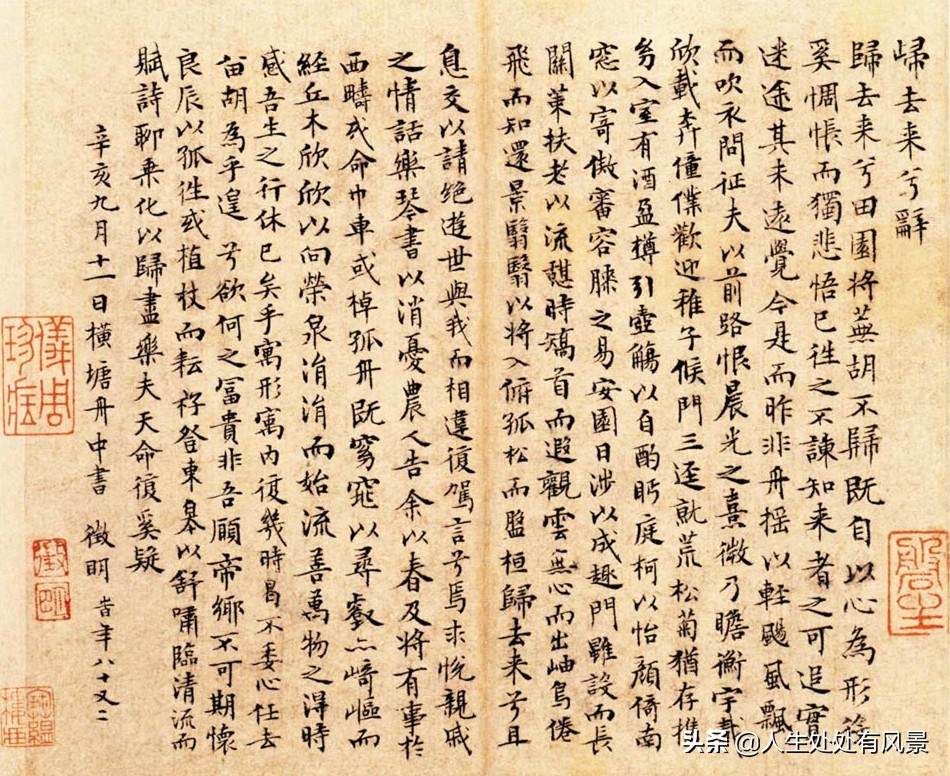 歸去来兮辭
歸去来兮田園将蕪胡不歸既自以心為形役
奚惆悵而獨悲悟已往之不諫知来者之可追實
迷途其未遠覺今是而昨非舟揺以輕颺風飄
而吹衣問征夫以前路恨晨光之熹微乃瞻衡宇載
欣載奔僮僕歡迎稚子候門三逕就荒松菊猶存携
幼入室有酒盈樽引壺觴以自酌眄庭柯以怡顔倚南
窓以寄傲審容膝之易安園日涉以成趣門雖設而長
關策扶老以流憇時矯首而遐觀雲無心而出岫鳥倦
飛而知還景翳翳以将入俯孤松而盤桓歸去来兮且
息交以請絶遊世與我而相違復駕言兮焉求悅親戚
之情話樂琴書以消憂農人告余以春及将有事於
西疇或命巾車或棹孤舟既窈窕以尋壑亦崎嶇而
經丘木欣欣以向榮泉涓涓而始流善萬物之淂時
感吾生之行休已矣乎寓形寓内復幾時曷不委心任去
留胡為乎遑兮欲何之富貴非吾願帝鄉不可期懷
良辰以孤往或植杖而耘耔登東皋以舒嘯臨清流而
賦詩聊乗化以歸盡樂夫天命復奚疑
辛亥九月十一日橫塘舟中書 徵明 時年八十又二
儀周珍藏
徵明
头条 @人生处处有风景